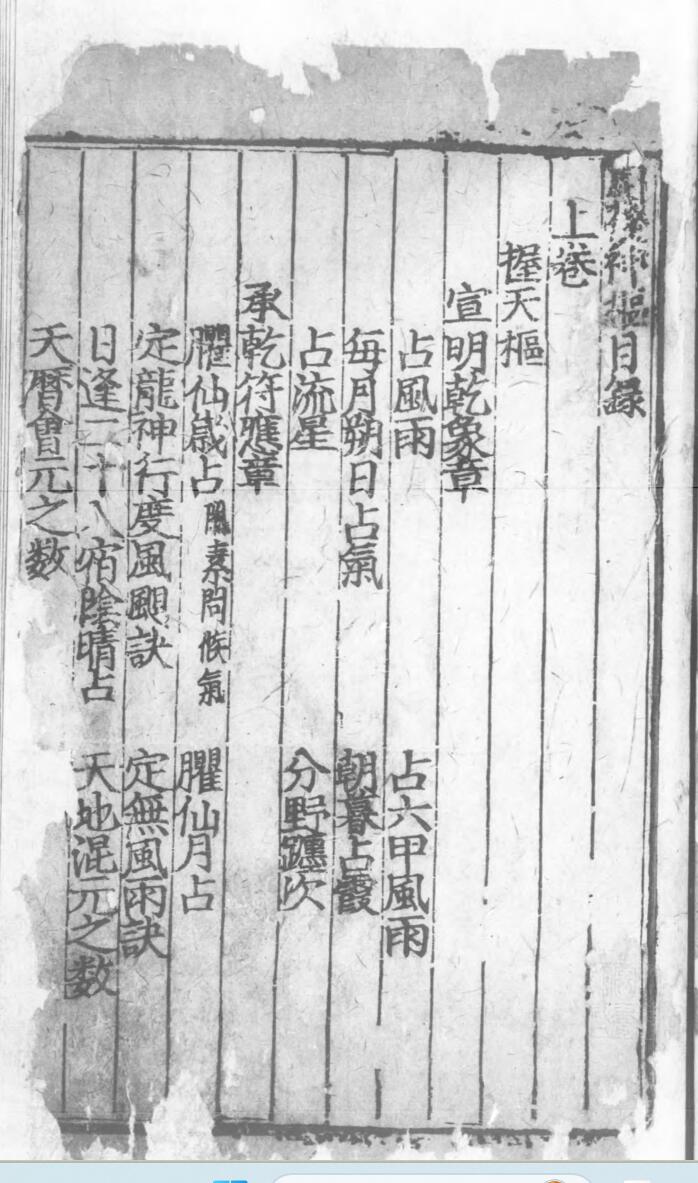 神樞目錄
上卷
握天樞
宣明乾象章
占風雨 占六甲風雨
每月朔日占氣 朝暮占霞
占流星 分野躔次
承乾符應章
臞仙歲占 素問候氣 臞仙月占
定龍神行度風颶訣 定無風雨訣
日逢二十八宿陰晴占 天地混元之數
天曆會元之數